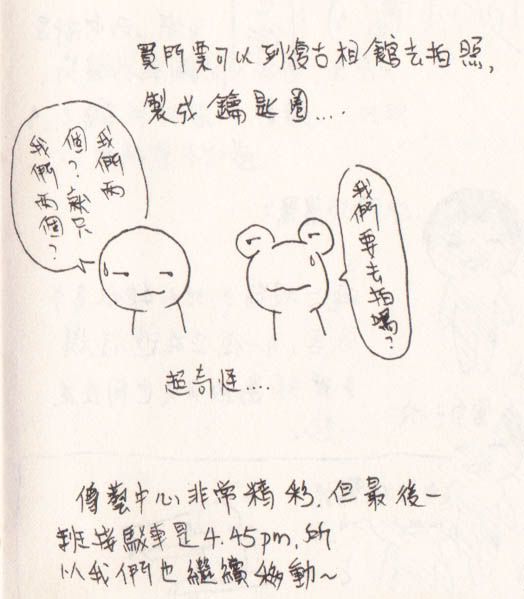 買門票可以到復古相館去拍照,
製成鑰匙圈....
我們兩
個?就只
我們兩個?
我們要去拍嗎?
超奇怪....
傳藝中心非常精彩,但最後一
班接駁車是4.45pm,所
以我們也繼續移動~